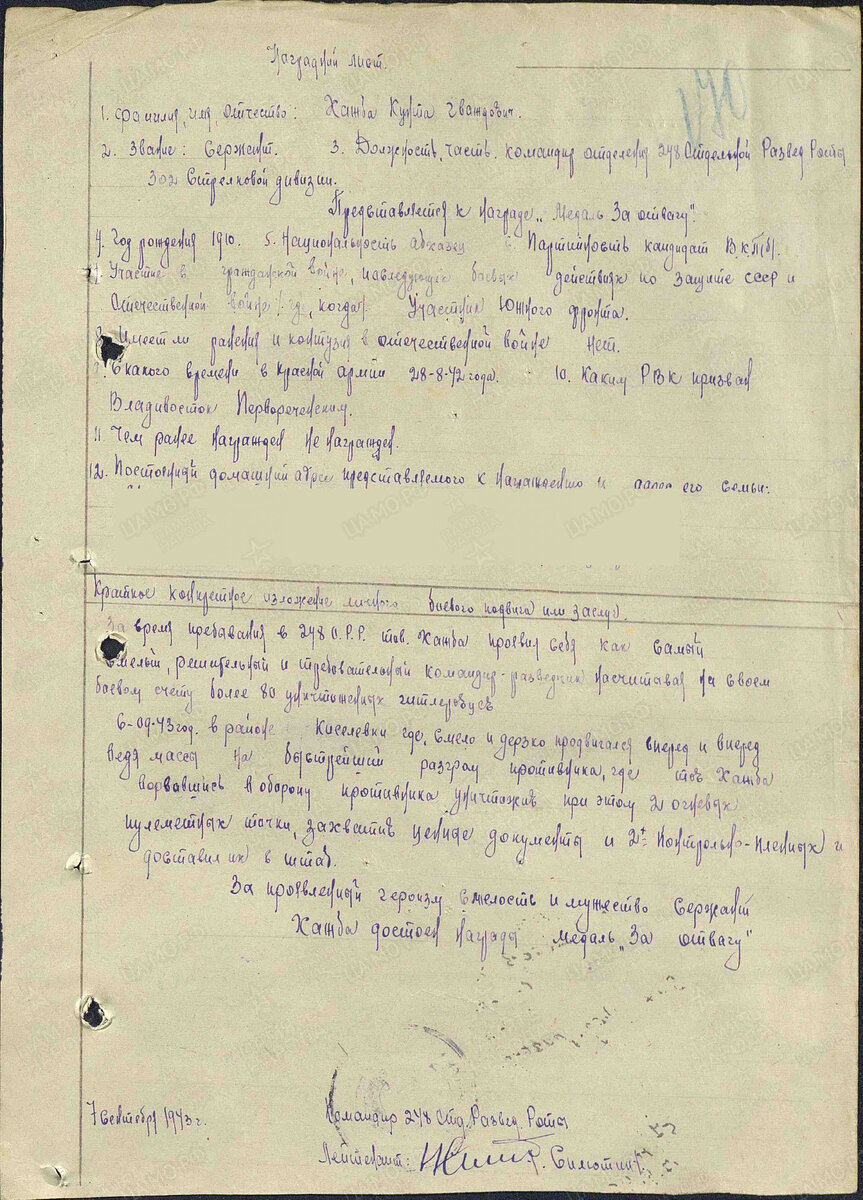 Наградной лист.
170
1. Фамилия, имя, отчество: Хажба Куята Гваждович.
2. Звание: Сержант. 3. Должность, часть. командир отделения 248 Отдельной Развед Роты
302 Стрелковой дивизии.
Представляется к награде „Медаль За отвагу".
4. Год рождения 1910. 5. Национальность абхазец 6. Партийность кандидат В.К.П(б).
Участие в гражданской войне, последующих боевых действиях по защите СССР и
Отечественной войне (где, когда) Участник Южного фронта.
8. Имеет ли ранения и контузия в отечественной войне Нет.
9. С какого времени в Красной армии 28-8-42 года. 10. Каким РВК призван
Владивосток Первореченским.
11. Чем ранее награжден не награжден.
12. Постоянный домашний адрес представляемого к награждению и адрес его семьи:
Краткое конкретное изложение личного боевого подвига или заслуг.
За время пребавания в 248 О.Р.Р. тов. Хажба проявил себя как самый
смелый, решительный и требовательный командир-разведчик насчитавая на своем
боевом счету более 80 уничтоженных гитлеровцев
6-09-43 год. в районе Киселевки где, смело и дерзко продвигался вперед и вперед
ведя массы на быстрейший разгром противника, где тов Хажба
ворвавшись в оборону противника уничтожив при этом 2 огневых
пулеметных точки, захватив ценные документы и 2х Контрольно-пленных и
доставил их в штаб.
За проявленный героизм смелость и мужество Сержант
Хажба достоен награды медаль „За отвагу"
7 сентября 1943 г. Командир 248 Отд. Развед. Роты
Лейтенант: